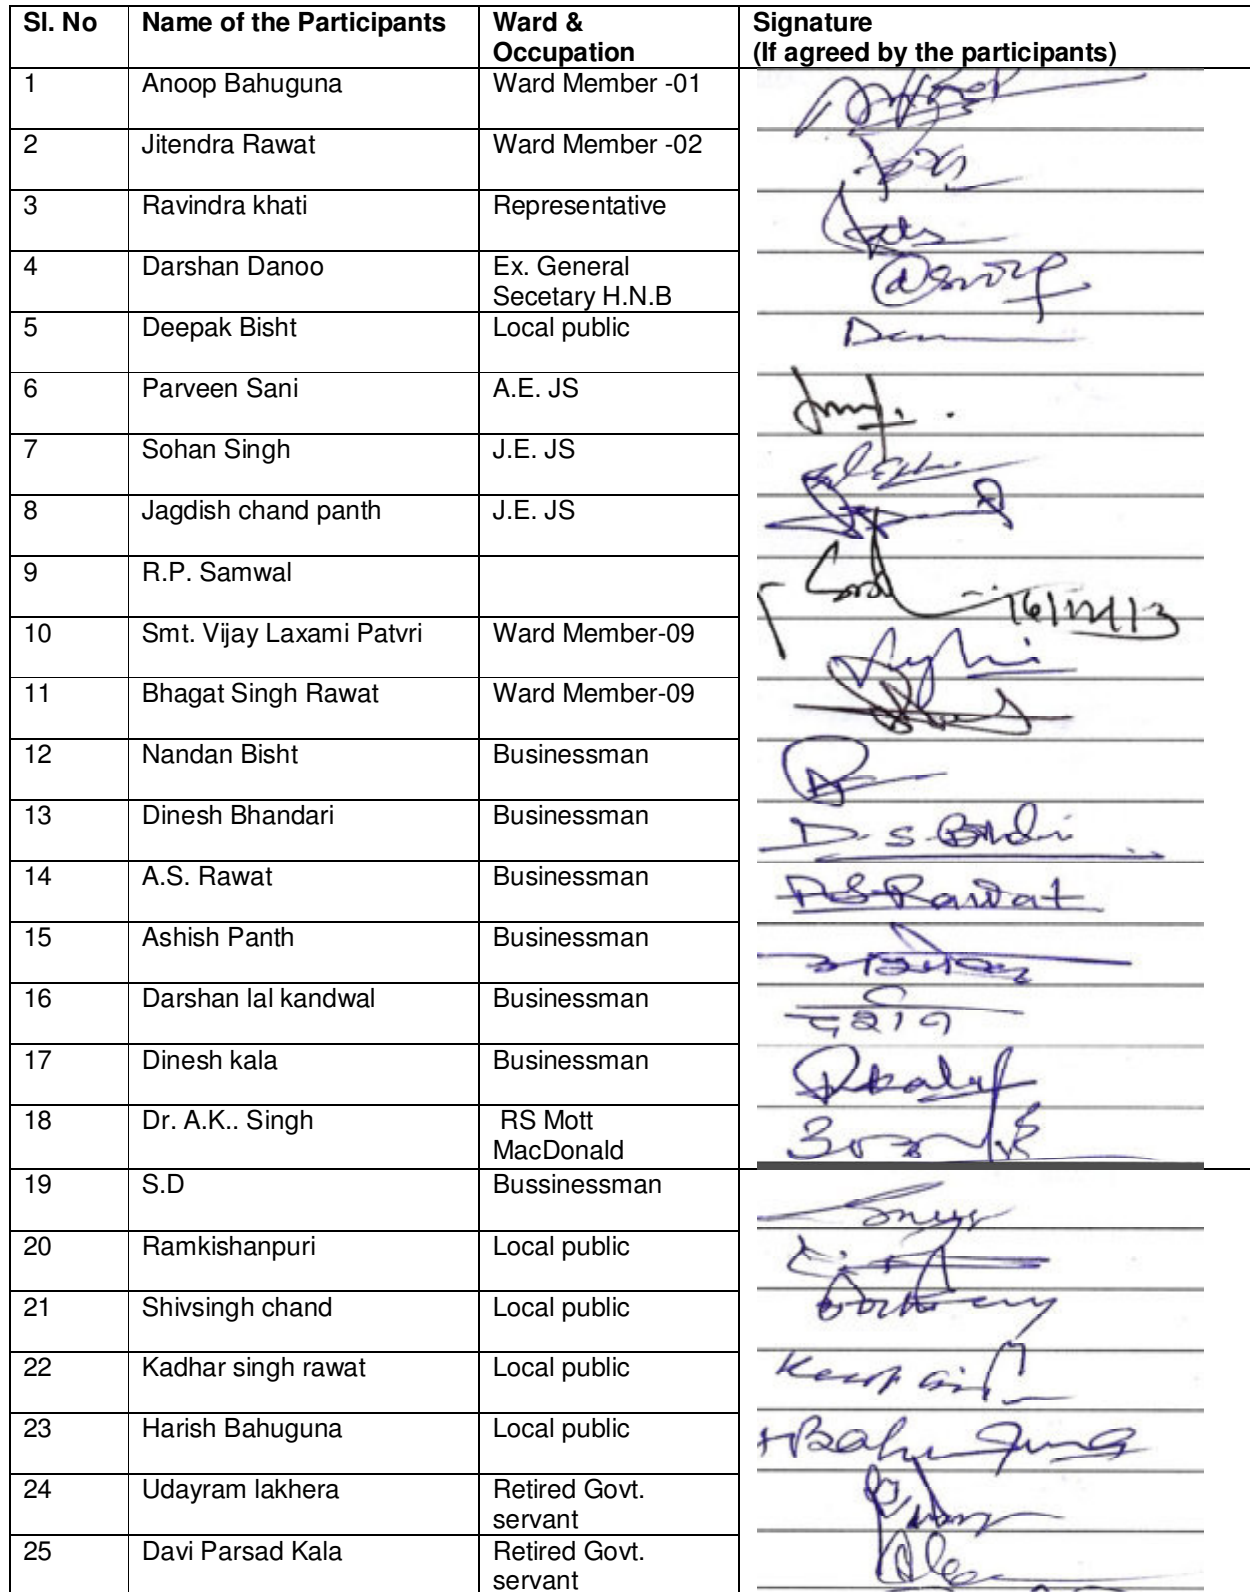 SI. No Name of the Participants Ward & Signature
Occupation (If agreed by the participants)
1 Anoop Bahuguna Ward Member -01
2 Jitendra Rawat Ward Member -02
3 Ravindra khati Representative
4 Darshan Danoo Ex. General
Secetary H.N.B
5 Deepak Bisht Local public
6 Parveen Sani A.E. JS
7 Sohan Singh J.E. JS
8 Jagdish chand panth J.E. JS
9 R.P. Samwal
10 Smt. Vijay Laxami Patvri Ward Member-09
11 Bhagat Singh Rawat Ward Member-09
12 Nandan Bisht Businessman
13 Dinesh Bhandari Businessman D.S.
14 A.S. Rawat Businessman AS Rawat
15 Ashish Panth Businessman
16 Darshan lal kandwal Businessman
17 Dinesh kala Businessman Dkala
18 Dr. A.K.. Singh RS Mott
MacDonald
19 S.D Bussinessman
20 Ramkishanpuri Local public
21 Shivsingh chand Local public
22 Kadhar singh rawat Local public
23 Harish Bahuguna Local public HBahuguna
24 Udayram lakhera Retired Govt.
servant
25 Davi Parsad Kala Retired Govt.
servant